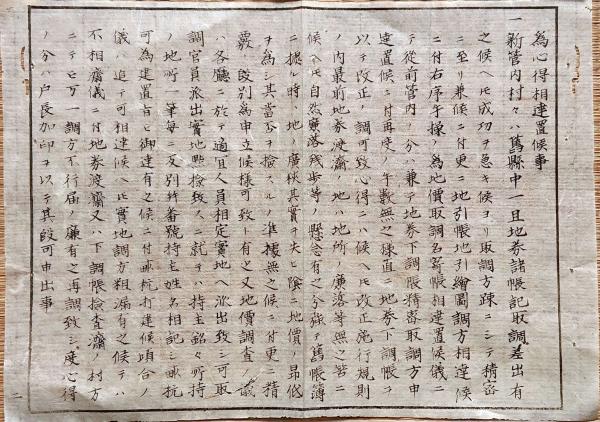 為心得相達置候事
一新管内村々ハ舊縣中一旦地券諸帳記取調差出有
之候ヘ𪜈成功ヲ急キ候ヨリ取調方疎ニシテ精密
ニ至リ兼候ニ付更ニ地引帳地引繪圖調方相達候
ニ付右序手操ノ為地價取調名寄帳相達置候儀ニ
テ從前管内ノ分ハ兼テ地券下調帳精密取調方申
達置候ニ付再度ノ手數無之様直ニ地券下調帳ヲ
以テ改正ノ調可致心得ニハ候ヘ𪜈改正施行規則
ノ内最前地券渡濟ノ地ハ地所ノ廣落等無之筈ニ
候ヘ𪜈自然廣落残歩等ノ懸念有之分強テ舊帳簿
ニ據ル時ハ地ノ廣狹其實ヲ失ヒ隨テ地價ノ昂低
ヲ為シ其當否ヲ撿スルノ準據無之候ニ付更ニ精
覈 段別為申立候様可致不有之又地價調査ノ儀
ハ各廳ニ於テ適宜人員相定實地ヘ派出致シ可取
調官員派出實地點撿致スニ就テハ持主銘々所持
ノ地所一筆毎ニ反別幷番號持主姓名相記シ畝杭
可為建置旨モ御達有之候ニ付畝杭打建候頃合ノ
儀ハ追テ可相達候ヘ𪜈實地調方粗漏有之候テハ
不相濟儀ニ付地券渡濟又ハ下調帳撿査濟ノ村方
ニテモ万一調方不行届ノ廉有之再調致シ度心得
ノ分ハ戸長加印ヲ以テ其段可申出事
二